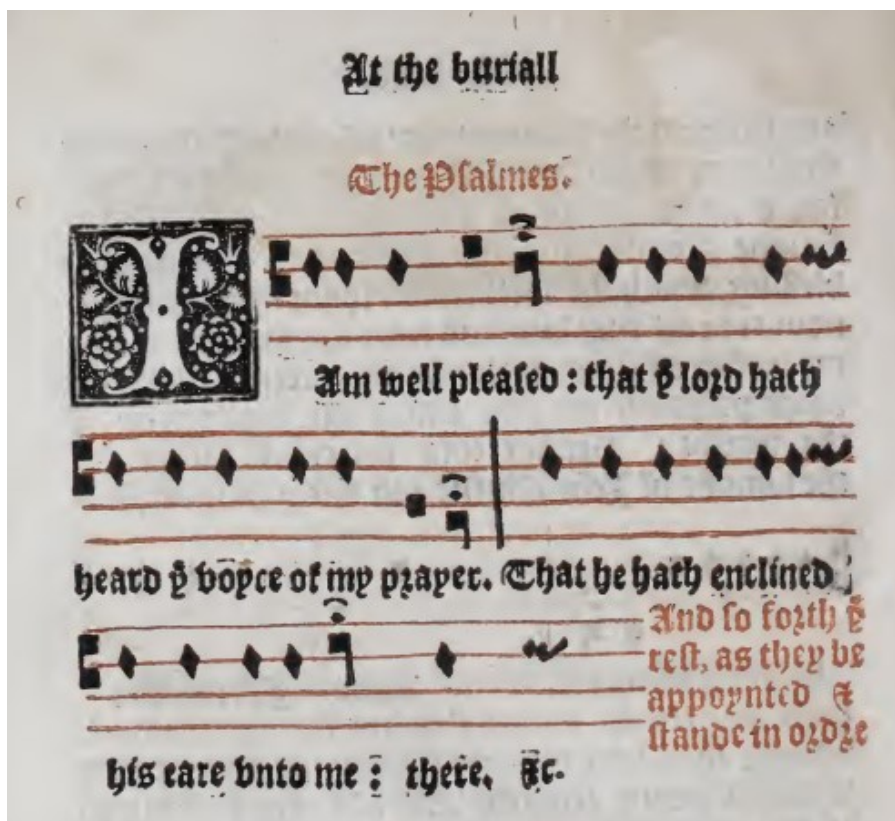 At the buriall
The Psalmes.
I Am well pleased : that yͤ lord hath
heard yͤ voyce of my prayer. That he hath enclined
his eare vnto me : there, &c.
And so forth yͤ
rest, as they be
appoynted &
stande in ordre